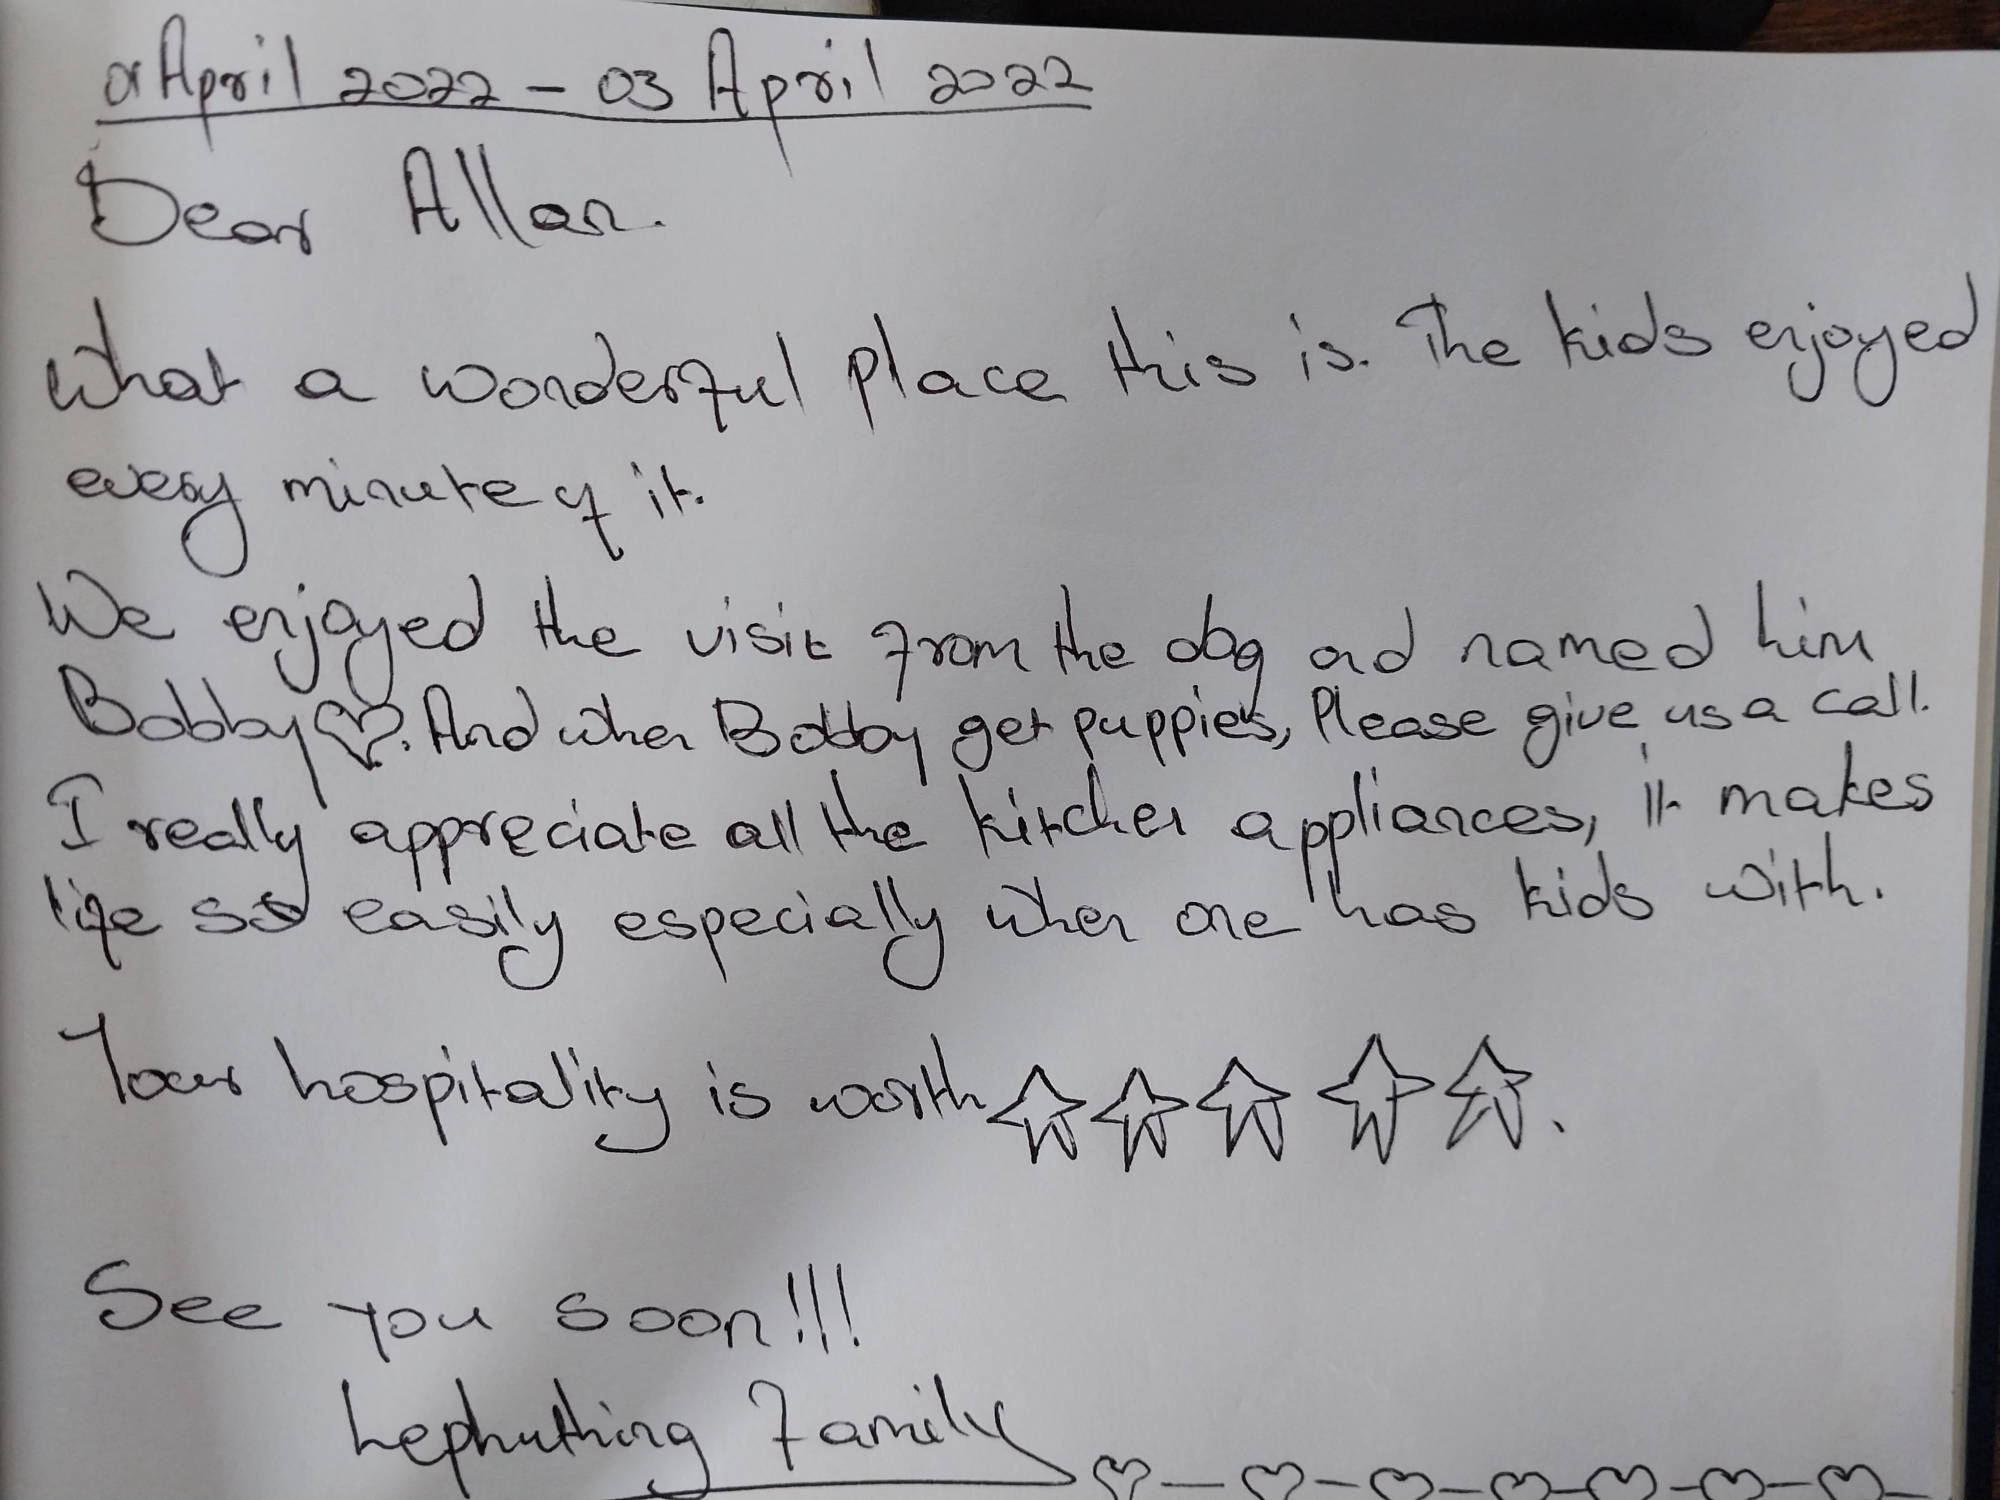 01 April 2022 - 03 April 2022
Dear Allan.
What a wonderful place this is. The kids enjoyed
every minute of it.
We enjoyed the visit from the dog and named him
Bobby. And when Bobby get puppies, Please give us a call.
I really appreciate all the kitchen appliances, it makes
life so easily especially when one has kids with.
Your hospitality is worth
See you soon!!!
Lephuthing Family